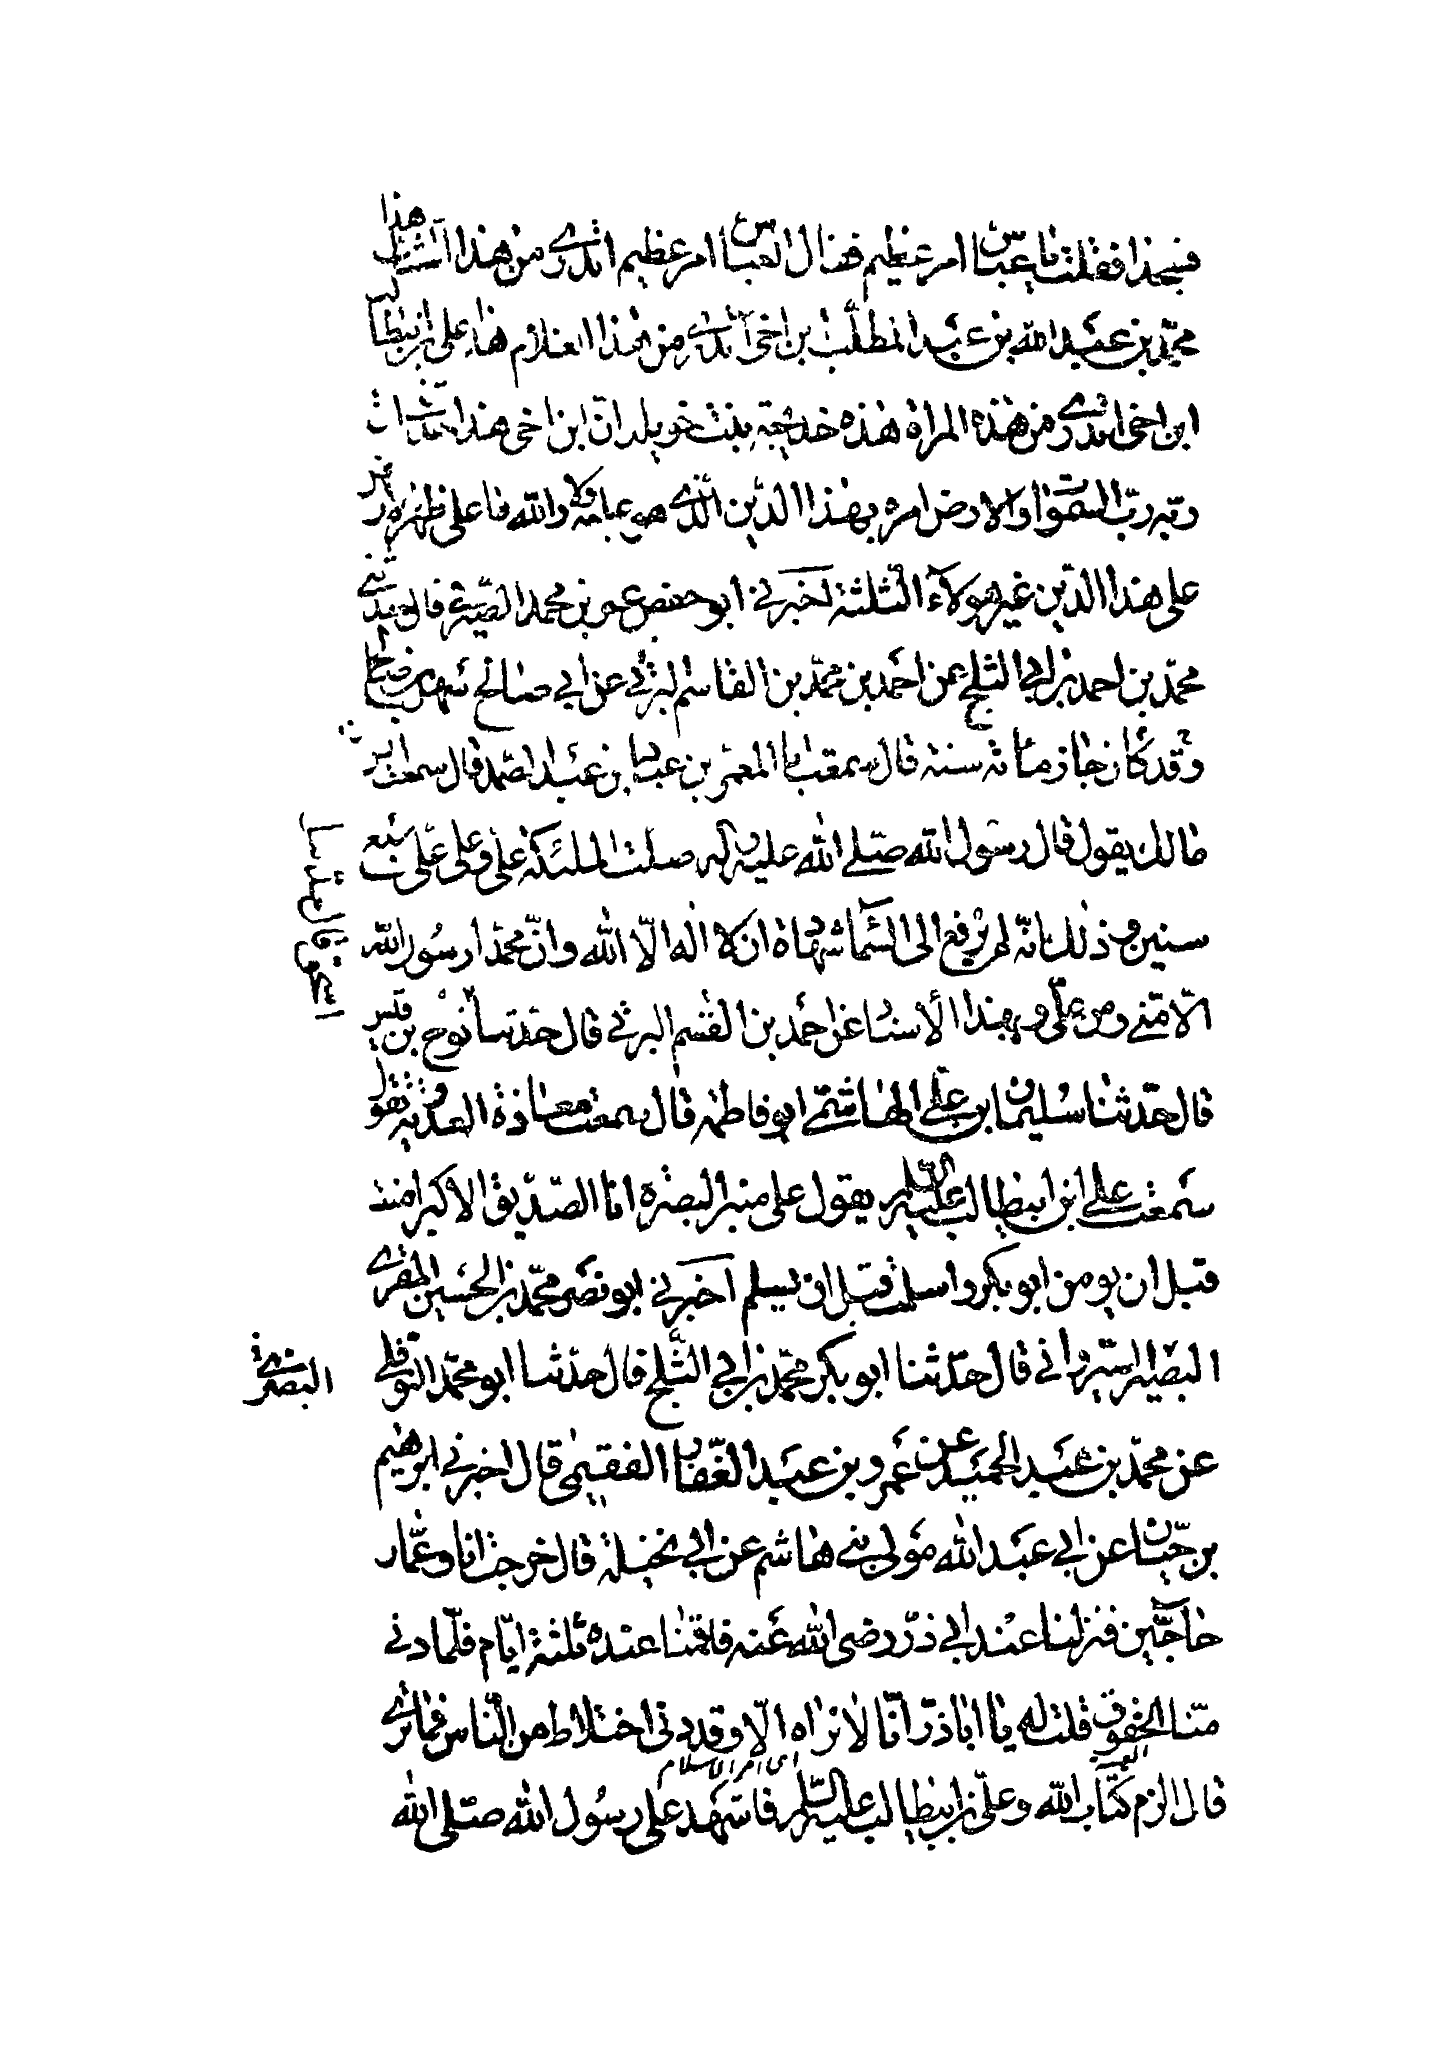 فسجدا فقلت يا عباس امر عظيم فقال العباس امر عظيم اتدرى من هذا الشاب هذا
محمّد بن عبد الله بن عبد المطلب بن اخى اتدرى من هذا الغلام هذا على بن ابيطالب
ابن اخى اتدرى من هذه المراة هذه خديجة بنت خويلد انّ ابن اخى هذا حدثنى انّ
ربّه ربّ السموات والارض امره بهذا الدّين الّذى هو عليه ولا والله ما على ظهر الارض
على هذا الدّين غير هولاء الثلثة اخبرنى ابو حفص عمر بن محمد الصيرفى قال حدثنى
محمّد بن احمد بن ابى الثلج عن احمد بن محمّد بن القاسم البرتى عن ابى صالح سهل بن صالح
وقد كان جاز مائة سنة قال سمعت ابا المعمر بن عباد بن عبد الصّمد قال سمعت انس بن
مالك يقول قال رسول الله صلى الله عليه واله صلت الملئكة علىّ وعلى علىّ سبع
سنين وذلك انّه لم يرفع الى السّماء شهادة ان لا اله الّا الله وانّ محمّدا رسول الله
الّا منّى ومن علىّ وبهذا الاسناد عن احمد بن القسم البرتى قال حدثنا نوح بن قيس
قال حدّثنا سليمان ابن على الهاشمى ابو فاطمة قال سمعت معاذة العدوية تقول
سمعت على ابن ابيطالب عليه السّلم يقول على منبر البصرة انا الصّدّيق الاكبر امنت
قبل ان يومن ابو بكر واسلمت قبل ان يسلم اخبرنى ابو نصر محمّد بن الحسين المقرى
البصير السيروانى قال حدّثنا ابو بكر محمّد بن ابى الثّلج قال حدثنا ابو محمّد النوفلى
عن محمّد بن عبد الحميد عن عمرو بن عبد الغفّار الفقيمى قال اخبرنى ابرهيم
بن حيّان عن ابى عبد الله مولى بنى هاشم عن ابى نخيلة قال خرجت انا وعمّار
حاجّين فنزلنا عند ابى ذرّ رضى الله عنه فاقمنا عنده ثلثة ايّام فلمّا دنى
منّا الخفوق قلت له يا ابا ذرّ انّا لا نراه الّا وقد دنى اختلاط من النّاس فما ترى
اى امر الاسلام
قال الزم كتاب الله وعلىّ بن ابيطالب عليه السّلم فاشهد على رسول الله صلى الله
البصرى